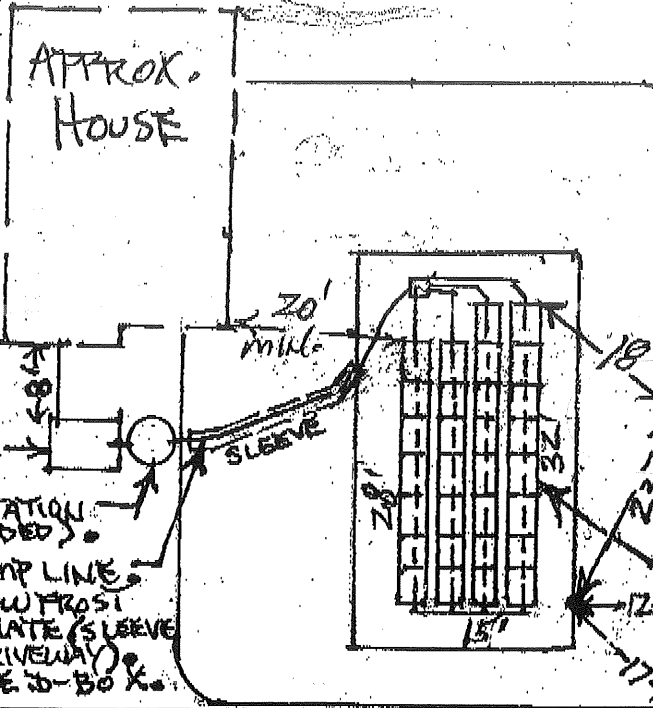 APPROX.
HOUSE
20'
MIN.
18
8
SLEEVE
28'
32'
15'
TATION
DED).
MP LINE.
W FROST
LATE (SLEEVE
RIVEWAY).
E D-BOX.
12
17